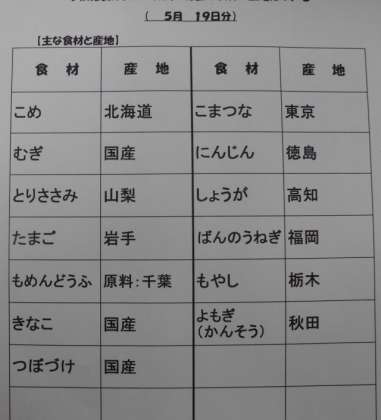 ( 5月 19日分)
[主な食材と産地]
食 材 産 地 食 材 産 地
こめ 北海道 こまつな 東京
むぎ 国産 にんじん 徳島
とりささみ 山梨 しょうが 高知
たまご 岩手 ばんのうねぎ 福岡
もめんどうふ 原料:千葉 もやし 栃木
きなこ 国産 よもぎ
(かんそう) 秋田
つぼづけ 国産